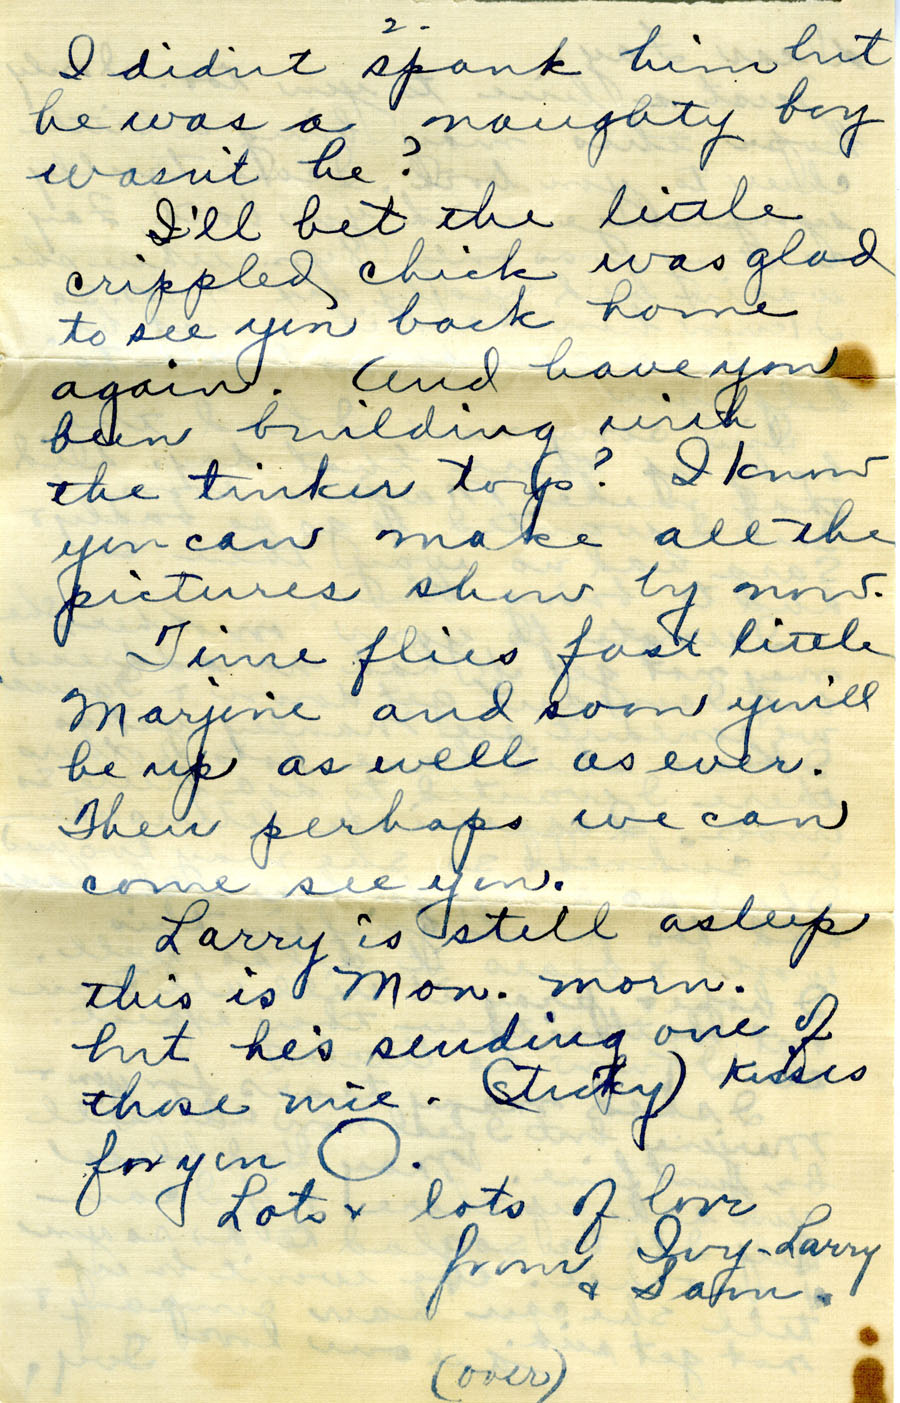 2-
I didn't spank him but
he was a naughty boy
wasn't he?
I'll bet the little
crippled chick was glad
to see you back home
again. And have you
been building with
the tinker toys? I know
you can make all the
pictures show by now.
Time flies fast little
Marjorie and soon you'll
be up as well as ever.
Then perhaps we can
come see you.
Larry is still asleep
this is Mon. morn.
but he's sending one of
those nice. (Sticky) kisses
for you O.
Lots & lots of love
from Ivy-Larry
& Sam.
(over)